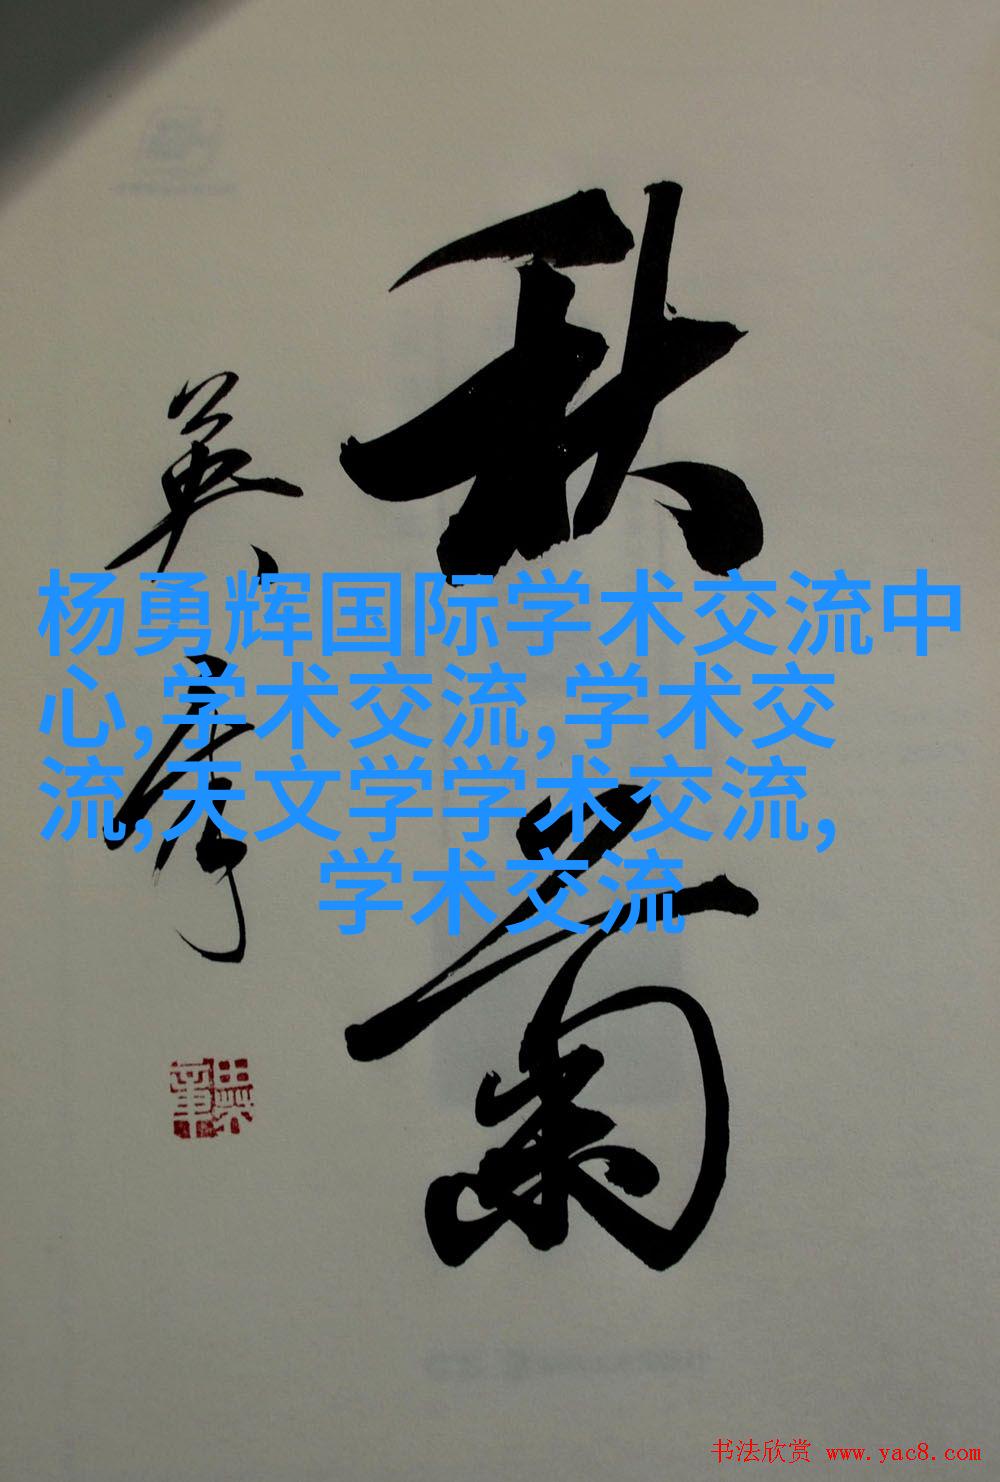 秋菊
英章
杨勇辉国际学术交流中
心,学术交流,学术交
流,天文学学术交流,
学术交流
书法欣赏 www.yac8.com